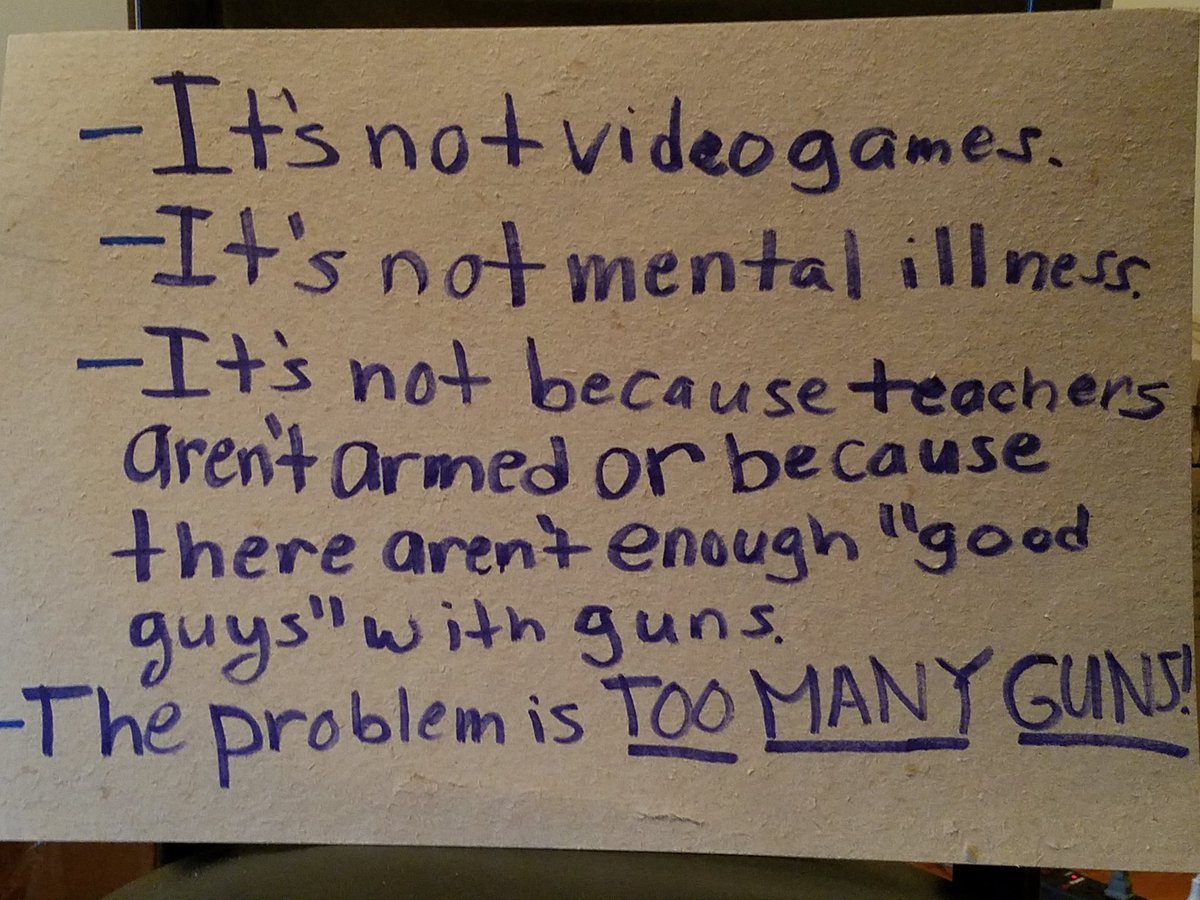 -It's not videogames.
-It's not mental illness.
-It's not because teachers
aren't armed or because
there aren't enough "good
guys" with guns.
-The problem is TOO MANY GUNS!